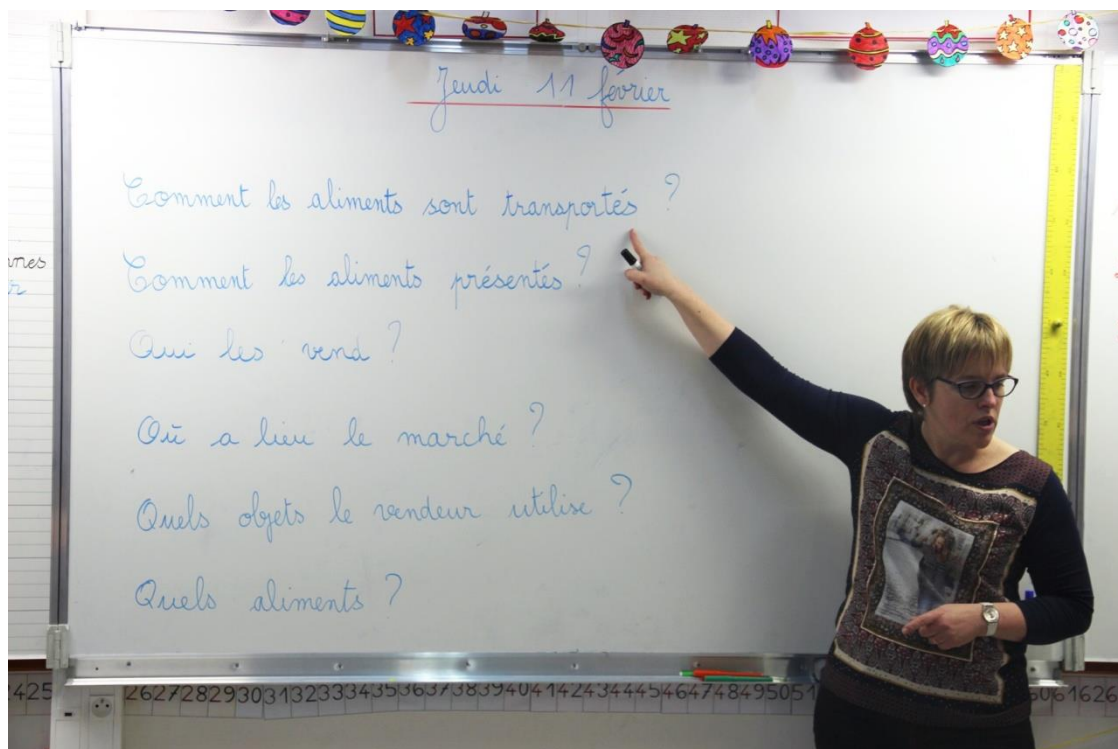 Jeudi 11 février
Comment les aliments sont transportés ?
Comment les aliments présentés ?
Qui les vend ?
Où a lieu le marché ?
Quels objets le vendeur utilise ?
Quels aliments ?
26 27 28 29 30 31 32 33 34 35 36 37 38 39 40 41 42 43 44 45 46 47 48 49 50